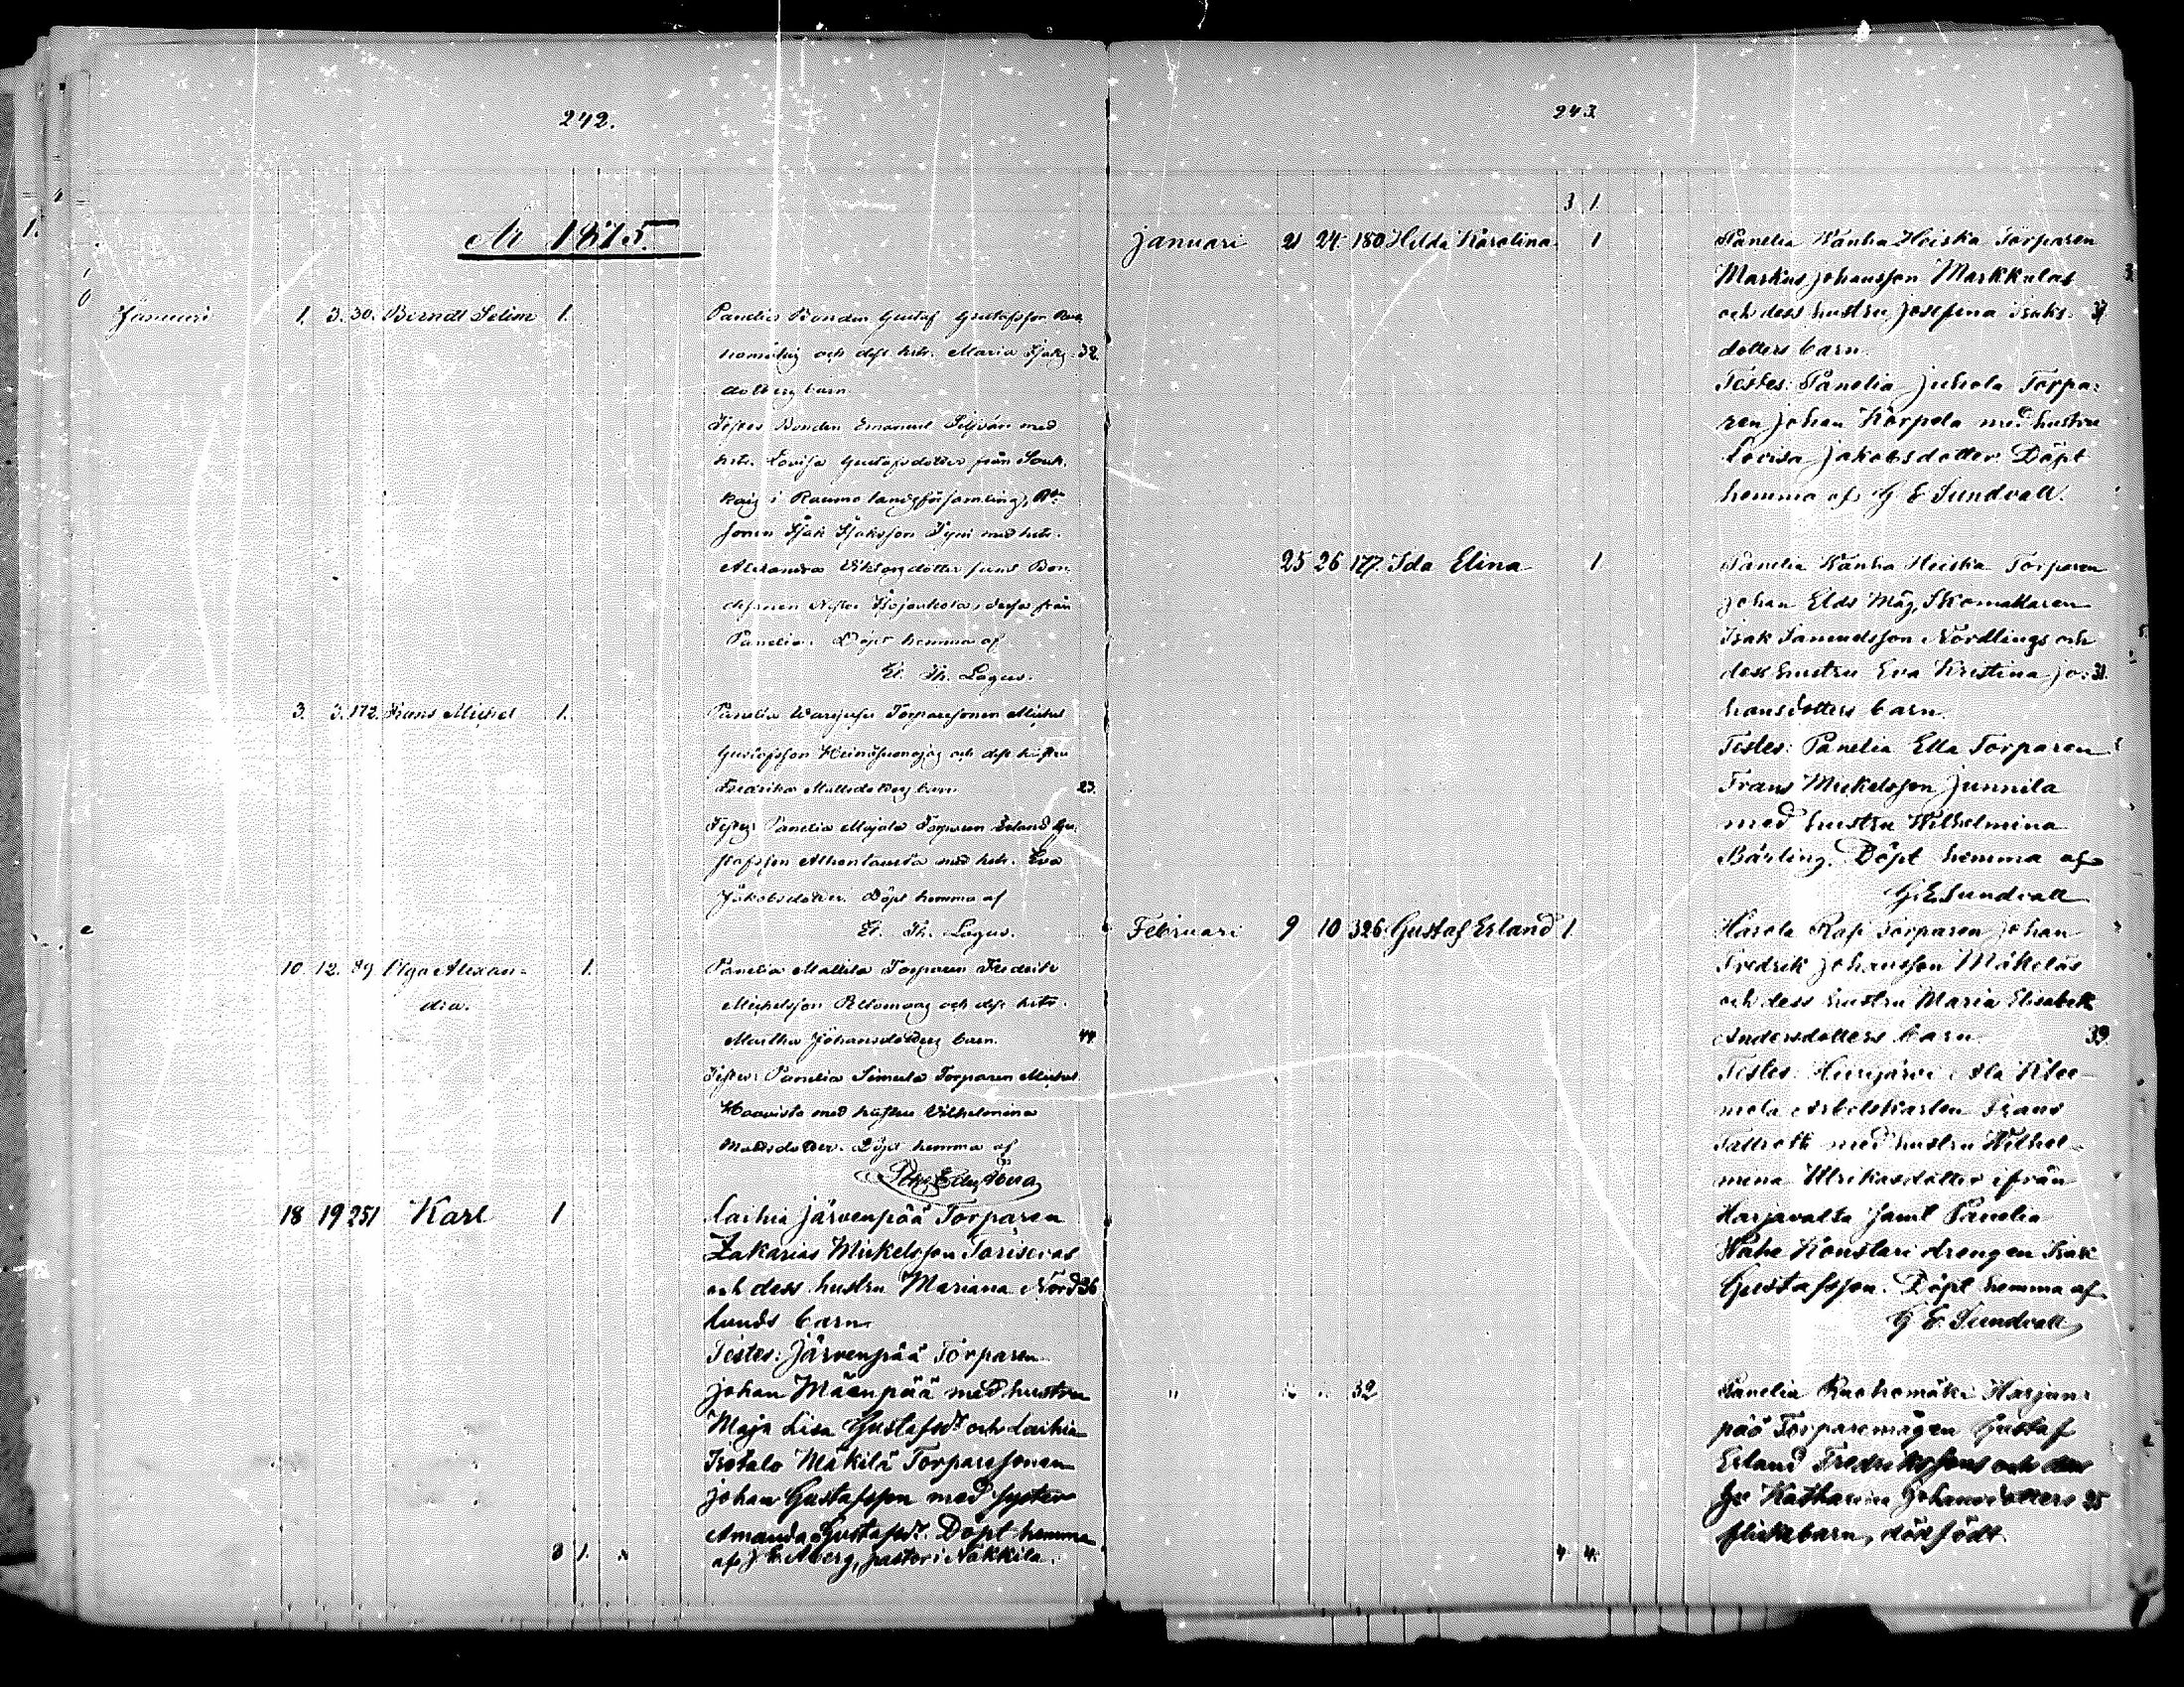 242.
År 1875.
Januari 1. 3. 30. Berndt Selim 1. Panelia Bonden Gustaf Gustafsson Ruo
homäkis och dess hstr. Maria Isaks 32.
dotters barn
Testes Bonden Emanuel Siljván med
hstr. Lovisa Gustafsdotter från Souk
kais i Raumo landsförsamling,
sonen Isak Isaksson Tyni med hstr.
Alexandra Viktorsdotter samt Bon
desonen dessa från
Panelia. Döpt hemma af
El. Th. Lagus.
3. 3. 172. Frans Michel 1. Panelia Torparesonen Michel
Gustafsson Heinäsuonojas och dess hustru
Fredrika Mattsdotters barn 23.
Testes Panelia Majala Torparen Erland Gu
stafsson Ahontausta med hstr. Eva
Jakobsdotter. Döpt hemma af
El. Th. Lagus.
10. 12. 89 Olga Alexan= 1. Panelia Mattila Torparen Fredrik
dra. Michelsson Peltomaas och dess hstr.
Martha Johansdotters barn. 44.
Testes: Panelia Simula Torparen Michel
Haavisto med hustru Vilhelmina
Mattsdotter. Döpt hemma af
18 19 251 Karl 1 Laihia Järvenpää Torparen
Zakarias Mickelsson Torisevas
och dess hustru Mariana Nord 36
lunds barn
Testes: Järvenpää Torparen
Johan Mäenpää med hustru
Maja Lisa Gustafsdr och Laihia
Isotalo Mäkilä Torparesonen
Johan Gustafsson med syster
Amanda Gustafsdr. Döpt hemma
3 1. af J. E. Åberg, pastor i Nakkila.
243
3 1.
Januari 21 24 180 Hilda Karolina 1 Panelia Wanha Heiska Torparen
Markus Johansson Markkulas
och dess hustru Josefina Isaks 37
dotters barn.
Testes: Panelia Juhola Torpa=
ren Johan Korpela med hustru
Lovisa Jakobsdotter. Döpt
hemma af G E Sundvall.
25 26 177. Ida Elina 1 Panelia Wanha Heiska Torparen
Johan Elds Måg, Skomakaren
Isak Samuelsson Nordlings och
dess hustru Eva Kristina Jo= 31.
hansdotters barn.
Testes: Panelia Ella Torparen
Frans Mickelsson Junnila
med hustru Wilhelmina
Bärling. Döpt hemma af
G. E. Sundvall
Februari 9 10 326 Gustaf Erland 1. Harola Rasi Torparen Johan
Fredrik Johansson Mäkeläs
och dess hustru Maria Elisabet
Andersdotters barn 39.
Testes: Hiirijärvi Ala Klee=
mola Arbetskarlen Frans
Tallroth med hustru Wilhel=
mina Ulrikasdotter ifrån
Harjavalta samt Panelia
Wähe Konstari drengen Isak
Gustafsson. Döpt hemma af
G E Sundvall
" " " 32 Panelia Ruohomäki Harjun=
pää Torparemågen Gustaf
Erland Fredrikssons och dess
Katharina Johansdotters 25
4. 4. flickebarn, dödfödt.